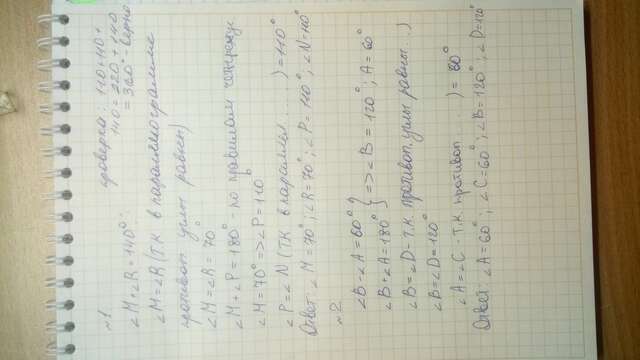 №1.
∠M+∠R=140°.
проверка: 110+110+
140=220+140
=360°-верно
∠M=∠R (т.к. в параллелограмме
противоп. углы равны)
∠M=∠R=70°
∠M+∠P=180°-по правилам
∠M=70°=>∠P=110°
∠P=∠N (т.к. в параллел.....)=110°
Ответ: ∠M=70°; ∠R=70°; ∠P=110°; ∠N=110°
№2
∠B-∠A=60°
∠B+∠A=180° } =>∠B=120°; A=60°
∠B=∠D-т.к. противоп. углы равны..)
∠B=∠D=120°
∠A=∠C-т.к. противоп.....)=60°
Ответ: ∠A=60°; ∠C=60°; ∠B=120°; ∠D=120°